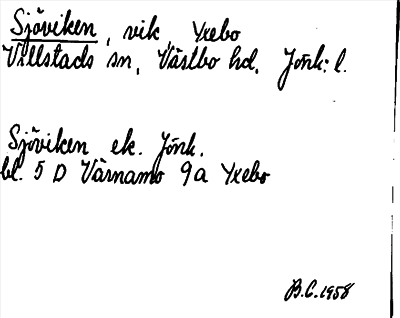 Sjöviken, vik, Yxebo
Villstads sn, Västbo hd, Jönk: l.
Sjöviken ek. Jönk.
bl. 5 D Värnamo 9a Yxebo
B.C. 1958